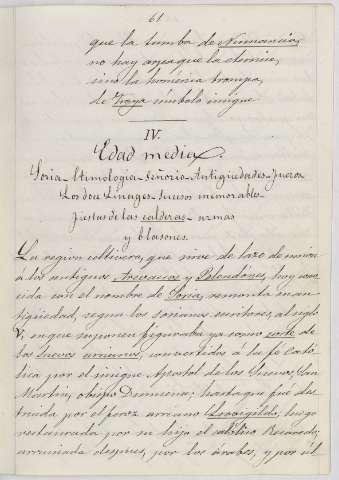 61
que la tumba de Numancia,
no hay arpa que la
sino la homérica trompa,
de Troya símbolo insigne
IV.
Edad media.
Soria - Etimología - Señorío - Antigüedades - Fueros
Los doce Linages - Sucesos memorables -
Fiestas de las calderas - armas
y blasones.
La region celtívera, que sirve de lazo de union
á los antiguos Arevacos y Pelendones, hoy cono
cida con el nombre de Soria, remonta su an-
tigüedad, segun los sorianos escritores, al siglo
V, en que suponen figuraba ya como corte de
los Suevos arrianos, convertidos á la fé Cató
lica por el insigne Apostol de los Suevos, San
Martin, obispo Dumiense; hasta que fué des
truida por el feroz arriano Leovigildo, luego
restaurada por su hijo el católico Recaredo;
arruinada despues, por los árabes, y por úl